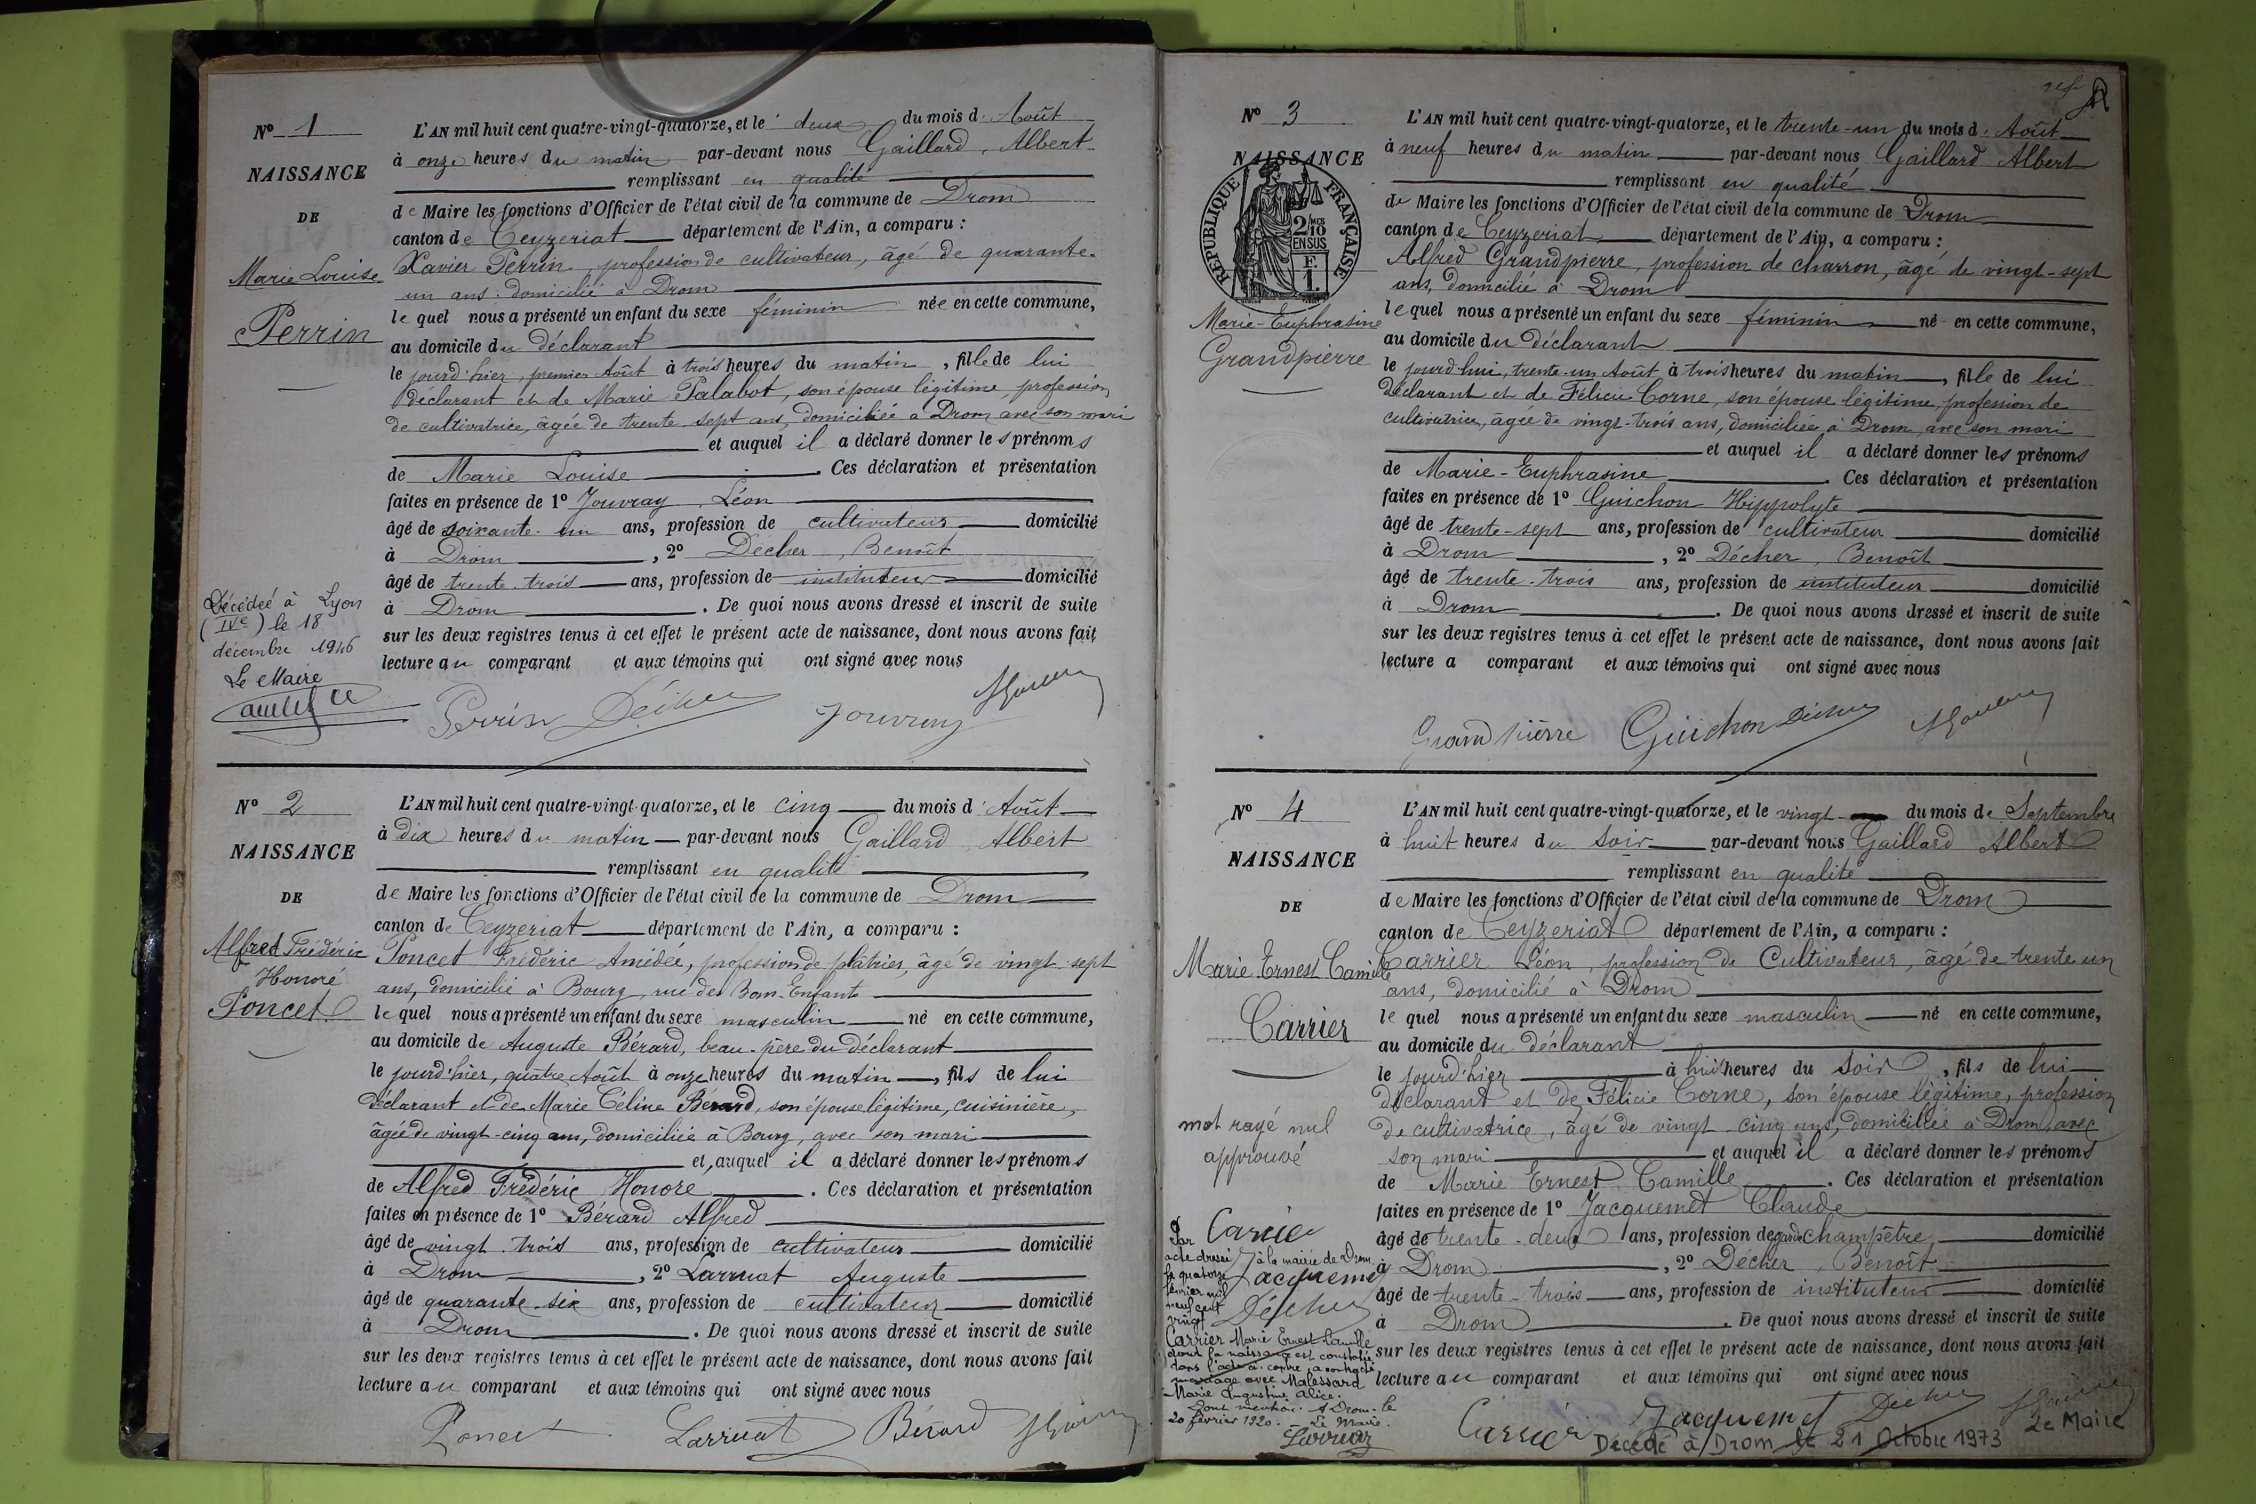 N° 1
NAISSANCE
DE
Marie Louise
Perrin
L'AN mil huit cent quatre-vingt-quatorze, et le deux du mois d'Août
à onze heures du matin par-devant nous Gaillard, Albert
remplissant en qualité
de Maire les fonctions d'Officier de l'état civil de la commune de Drom
canton de Ceyzeriat département de l'Ain, a comparu :
Xavier Perrin, profession de cultivateur, âgé de quarante-
un ans, domicilié à Drom
lequel nous a présenté un enfant du sexe féminin née en cette commune,
au domicile du déclarant
le jourd'hier, premier Août à trois heures du matin, fille de lui
déclarant et de Marie Palabot, son épouse légitime, profession
de cultivatrice, âgée de trente-sept ans, domiciliée à Drom avec son mari
et auquel il a déclaré donner les prénoms
de Marie Louise. Ces déclaration et présentation
faites en présence de 1° Jouvray, Léon
âgé de soixante-un ans, profession de cultivateur domicilié
à Drom, 2° Décher, Benoît
âgé de trente-trois ans, profession de instituteur domicilié
à Drom. De quoi nous avons dressé et inscrit de suite
sur les deux registres tenus à cet effet le présent acte de naissance, dont nous avons fait
lecture au comparant et aux témoins qui ont signé avec nous
Décédée à Lyon
(IVe) le 18
décembre 1946
Le Maire
Perrin Décher Jouvray AGaillard
N° 2
NAISSANCE
DE
Alfred Frédéric
Honoré
Poncet
L'AN mil huit cent quatre-vingt-quatorze, et le cinq du mois d'Août
à dix heures du matin par-devant nous Gaillard Albert
remplissant en qualité
de Maire les fonctions d'Officier de l'état civil de la commune de Drom
canton de Ceyzeriat département de l'Ain, a comparu :
Poncet Frédéric Amédée, profession de plâtrier, âgé de vingt-sept
ans, domicilié à Bourg, rue des Bons-Enfants
lequel nous a présenté un enfant du sexe masculin né en cette commune,
au domicile de Auguste Bérard, beau-père du déclarant
le jourd'hier, quatre Août à onze heures du matin, fils de lui
déclarant et de Marie Céline Bérard, son épouse légitime, cuisinière,
âgée de vingt-cinq ans, domiciliée à Bourg, avec son mari
et auquel il a déclaré donner les prénoms
de Alfred Frédéric Honoré. Ces déclaration et présentation
faites en présence de 1° Bérard Alfred
âgé de vingt-trois ans, profession de cultivateur domicilié
à Drom, 2° Larruat Auguste
âgé de quarante-six ans, profession de cultivateur domicilié
à Drom. De quoi nous avons dressé et inscrit de suite
sur les deux registres tenus à cet effet le présent acte de naissance, dont nous avons fait
lecture au comparant et aux témoins qui ont signé avec nous
Poncet Larruat Bérard AGaillard
N° 3
NAISSANCE
RÉPUBLIQUE FRANÇAISE
2/10 MES
EN SUS
F.
1.
Marie-Euphrasine
Grandpierre
L'AN mil huit cent quatre-vingt-quatorze, et le trente-un du mois d'Août
à neuf heures du matin par-devant nous Gaillard Albert
remplissant en qualité
de Maire les fonctions d'Officier de l'état civil de la commune de Drom
canton de Ceyzeriat département de l'Ain, a comparu :
Alfred Grandpierre, profession de charron, âgé de vingt-sept
ans, domicilié à Drom
lequel nous a présenté un enfant du sexe féminin né en cette commune,
au domicile du déclarant
le jourd'hui, trente-un Août à trois heures du matin, fille de lui
déclarant et de Félicie Corne, son épouse légitime, profession de
cultivatrice, âgée de vingt-trois ans, domiciliée à Drom, avec son mari
et auquel il a déclaré donner les prénoms
de Marie-Euphrasine. Ces déclaration et présentation
faites en présence de 1° Guichon Hippolyte
âgé de trente-sept ans, profession de cultivateur domicilié
à Drom, 2° Décher, Benoît
âgé de trente-trois ans, profession de instituteur domicilié
à Drom. De quoi nous avons dressé et inscrit de suite
sur les deux registres tenus à cet effet le présent acte de naissance, dont nous avons fait
lecture a comparant et aux témoins qui ont signé avec nous
Grandpierre Guichon Décher AGaillard
N° 4
NAISSANCE
DE
Marie Ernest Camille
Carrier
mot rayé nul
approuvé
L'AN mil huit cent quatre-vingt-quatorze, et le vingt du mois de Septembre
à huit heures du soir par-devant nous Gaillard Albert
remplissant en qualité
de Maire les fonctions d'Officier de l'état civil de la commune de Drom
canton de Ceyzeriat département de l'Ain, a comparu :
Carrier Léon, profession de Cultivateur, âgé de trente-un
ans, domicilié à Drom
lequel nous a présenté un enfant du sexe masculin né en cette commune,
au domicile du déclarant
le jourd'hier à huit heures du soir, fils de lui
déclarant et de Félicie Corne, son épouse légitime, profession
de cultivatrice, âgé de vingt-cinq ans, domiciliée à Drom avec
son mari et auquel il a déclaré donner les prénoms
de Marie Ernest Camille. Ces déclaration et présentation
faites en présence de 1° Jacquemet Claude
âgé de trente-deux ans, profession de garde champêtre domicilié
à Drom, 2° Décher, Benoît
âgé de trente-trois ans, profession de instituteur domicilié
à Drom. De quoi nous avons dressé et inscrit de suite
sur les deux registres tenus à cet effet le présent acte de naissance, dont nous avons fait
lecture au comparant et aux témoins qui ont signé avec nous
Carrier
Jacquemet
Décher
Par
acte dressé à la mairie de Drom
le quatorze
février mil
neuf cent
vingt
Carrier Marie Ernest Camille
dont la naissance est constatée
dans l'acte ci-contre, a contracté
mariage avec Malessard
Marie Augustine Alice.
Dont mention. A Drom le
20 février 1920. Le Maire.
Larruat
Carrier Jacquemet Décher AGaillard
Décédé à Drom le 21 Octobre 1973
Le Maire